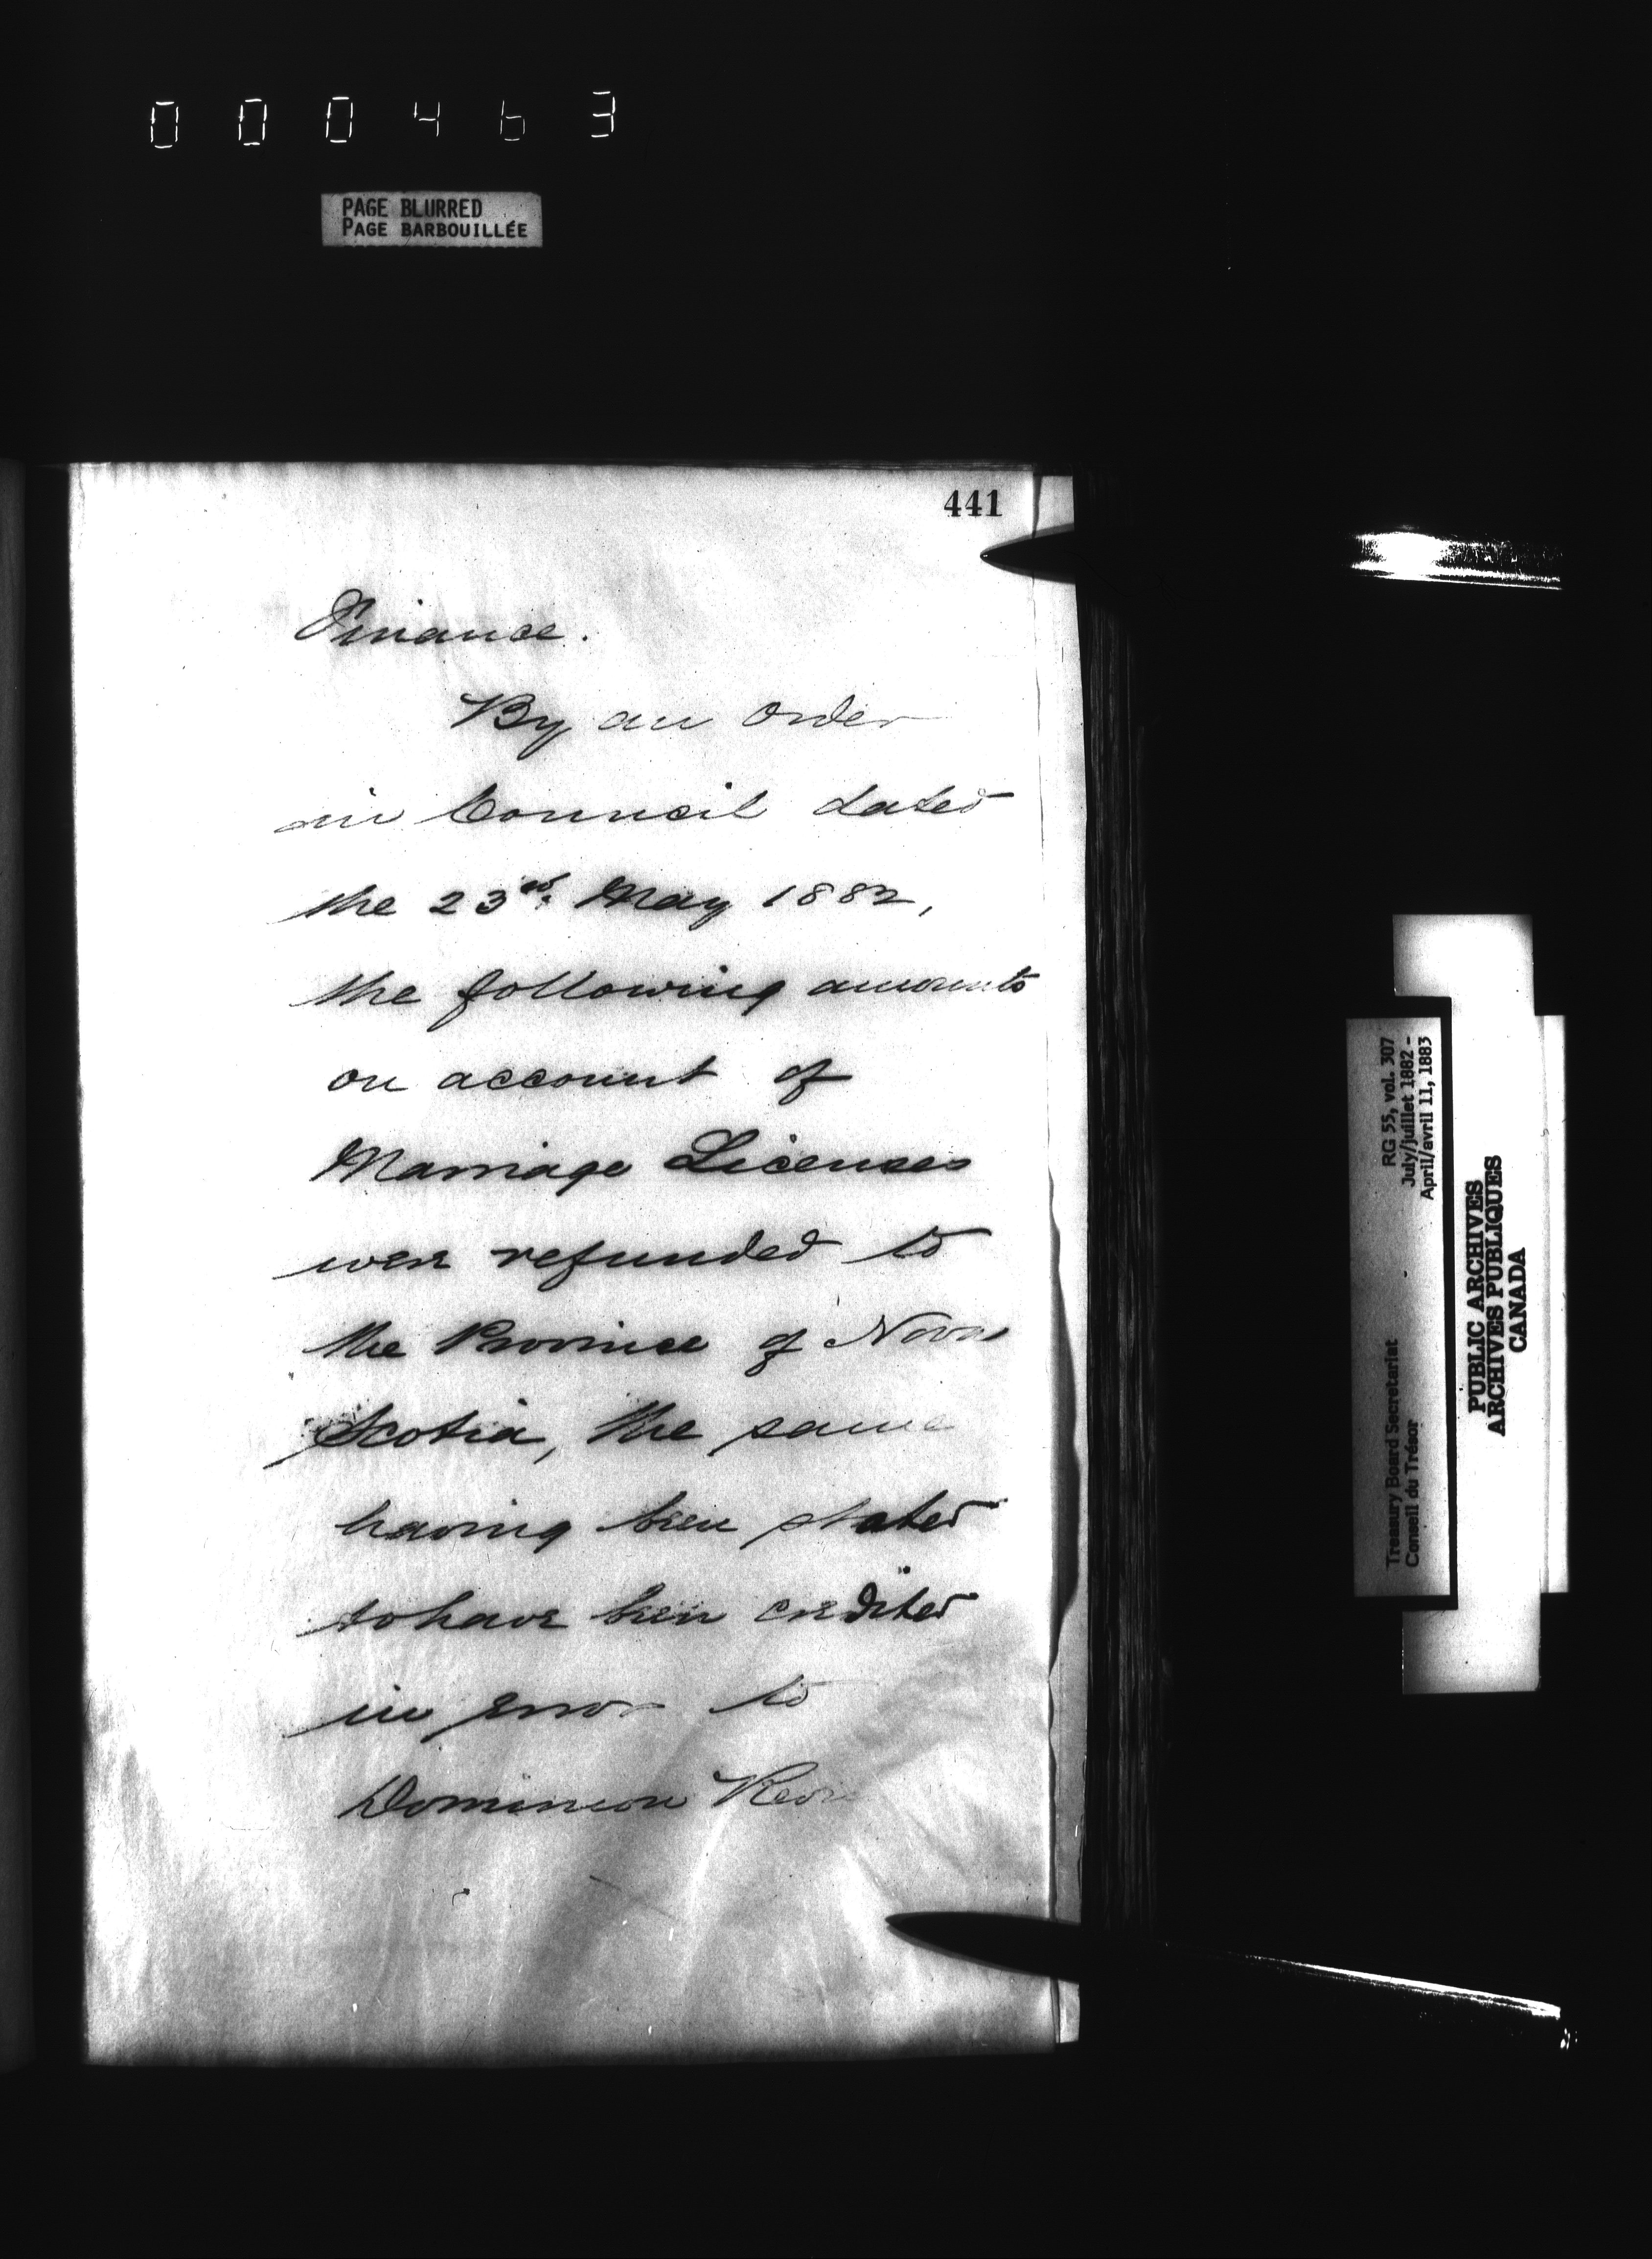 000463
PAGE BLURRED
PAGE BARBOUILLÉE
441
Finance.
By an Order
in Council dated
the 23rd. May 1882,
the following amounts
on account of
Marriage Licenses
were refunded to
the Province of Nova
Scotia, the same
having been stated
to have been credited
in error to
Dominion
RG 55, vol. 307
July/juillet 1882 -
April/avril 11, 1883
Treasury Board Secretariat
Conseil du Trésor
PUBLIC ARCHIVES
ARCHIVES PUBLIQUES
CANADA